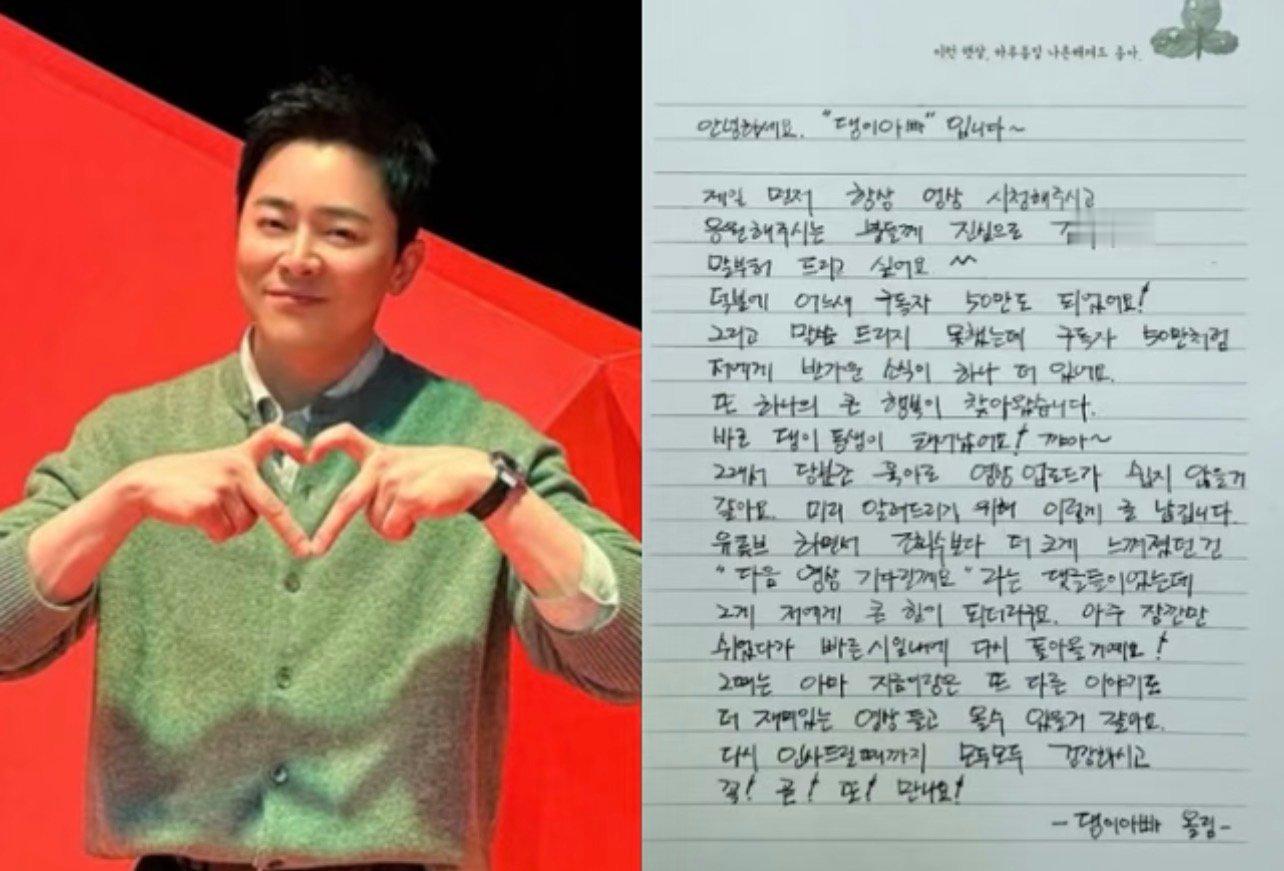 이런 햇살, 하루종일 나른해져도 좋아.
안녕하세요. "댕이아빠" 입니다~
제일 먼저 항상 영상 시청해주시고
응원해주시는 분들께 진심으로
말부터 드리고 싶어요 ^^
덕분에 어느새 구독자 50만도 되었어요!
그리고 말씀 드리지 못했는데 구독자 50만처럼
저에게 반가운 소식이 하나 더 있어요.
또 하나의 큰 행복이 찾아왔습니다.
바로 댕이 동생이 태어났어요! 꺄아~
그래서 당분간 육아로 영상 업로드가 쉽지 않을거
같아요. 미리 알려드리기 위해 이렇게 글 남깁니다.
유튜브 하면서 조회수보다 더 크게 느껴졌던 건
"다음 영상 기다릴께요" 라는 댓글들이었는데
그게 저에게 큰 힘이 되더라구요. 아주 잠깐만
쉬었다가 빠른시일내에 다시 돌아올거예요!
그때는 아마 지금이랑은 또 다른 이야기로
더 재미있는 영상 들고 올수 있을거 같아요.
다시 인사드릴때까지 모두모두 건강하시고
꼭! 곧! 또! 만나요!
- 댕이아빠 올림 -